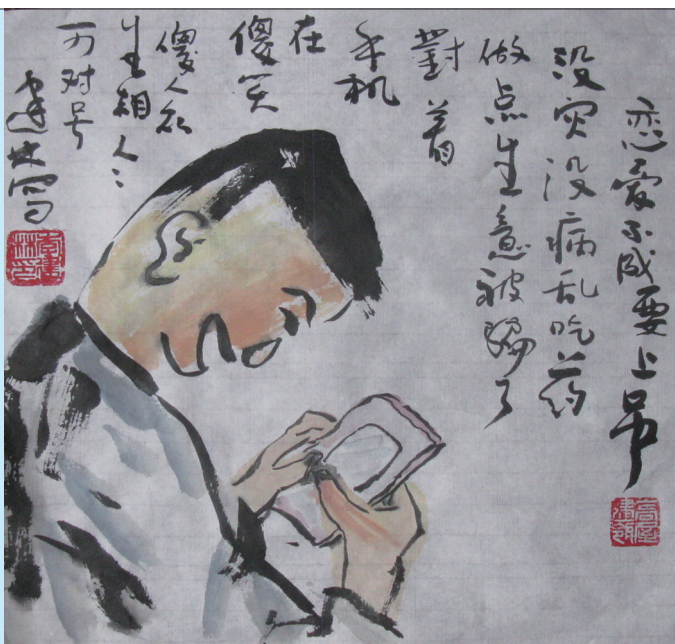 恋爱不成要上吊
没灾没病乱吃药
做点生意被骗了
對着
手机
在
傻笑
傻人众
生相人〻
可对号
建林写